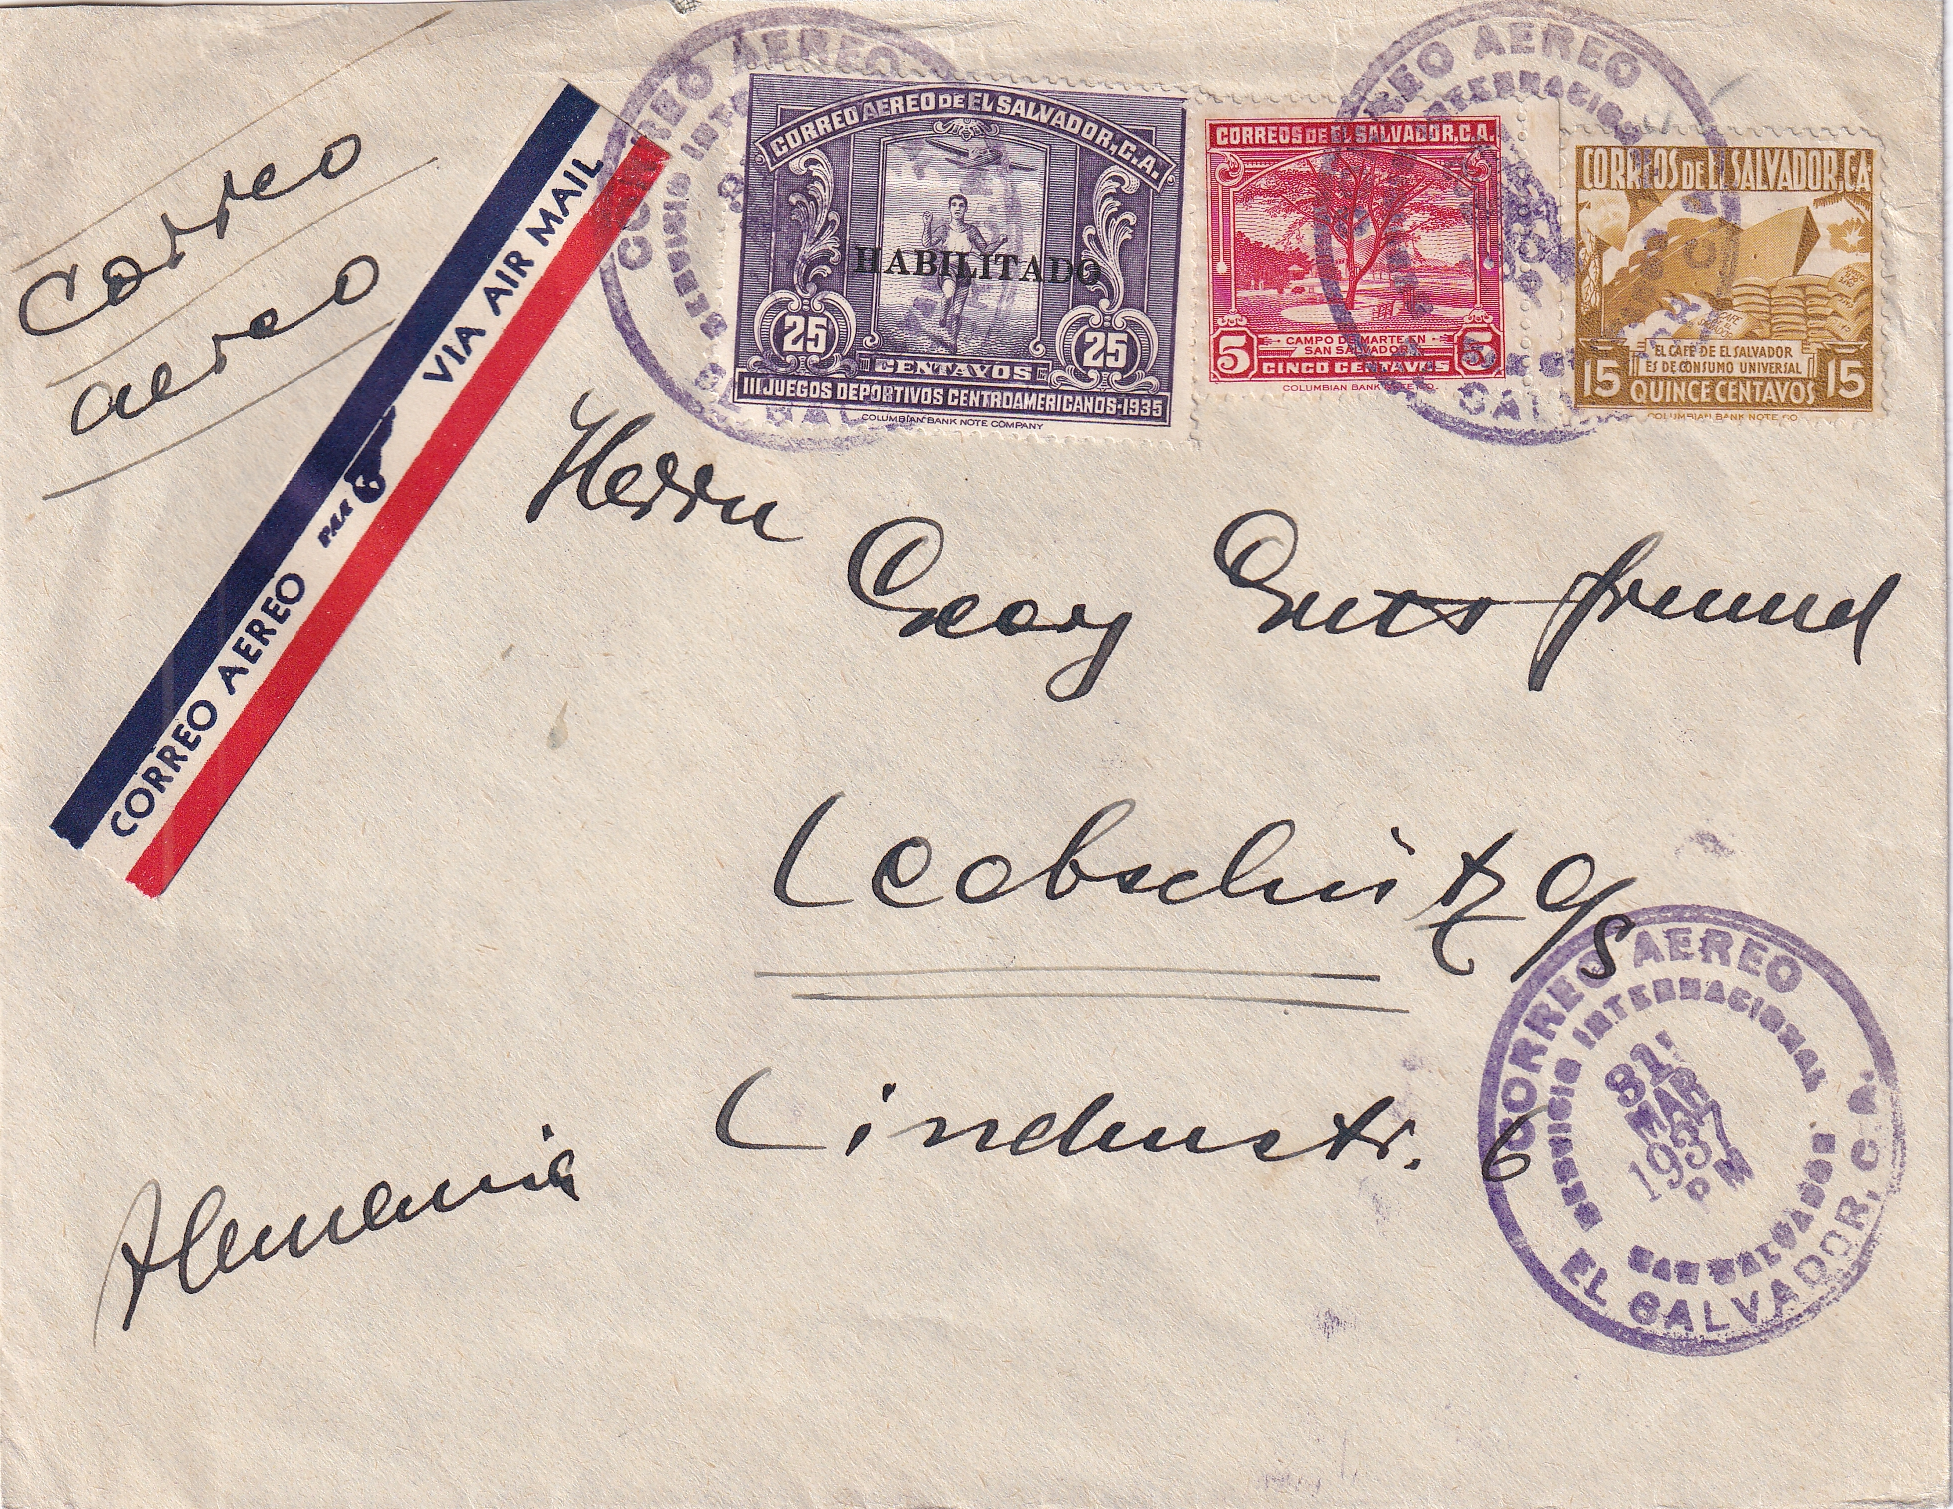 Correo
aereo
VIA AIR MAIL
PAA
CORREO AEREO
CORREO AEREO DE EL SALVADOR, C.A.
HABILITADO
25 25
CENTAVOS
III JUEGOS DEPORTIVOS CENTROAMERICANOS-1935
COLUMBIAN BANK NOTE COMPANY
CORREOS DE EL SALVADOR, C.A.
CAMPO DE MARTE EN
SAN SALVADOR
5 5
CINCO CENTAVOS
COLUMBIAN BANK NOTE CO.
CORREOS DE EL SALVADOR, C.A.
EL CAFE DE EL SALVADOR
ES DE CONSUMO UNIVERSAL
15 15
QUINCE CENTAVOS
COLUMBIAN BANK NOTE CO.
CORREO AEREO
CORREO AEREO
Herrn
Georg Gutsfreund
Leobschütz O/S
Lindenstr. 6
Alemania
CORREO AEREO
SERVICIO INTERNACIONAL
31
MAR
1937
PM
SAN SALVADOR
EL SALVADOR, C.A.